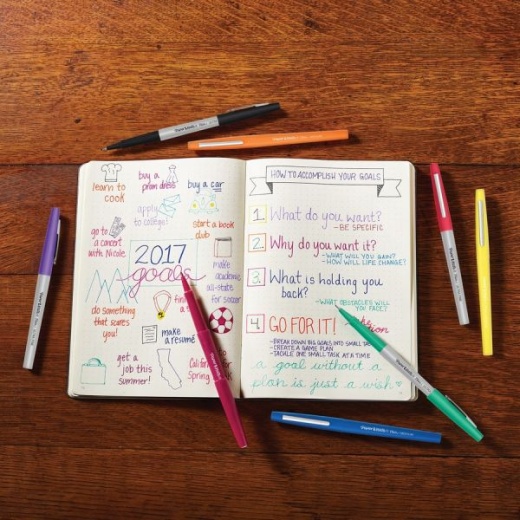 learn to
cook
buy a
prom dress
buy a car
apply
to college!
start a book
club
go to
a concert
with Nicole
2017
goals
make
academic
all-state
for soccer
do something
that scares
you!
find
a
make
a resumé
get a
job this
summer!
California
Spring
HOW TO ACCOMPLISH YOUR GOALS
1. What do you want?
- BE SPECIFIC
2. Why do you want it?
- WHAT WILL YOU GAIN?
- HOW WILL LIFE CHANGE?
3. What is holding you
back?
- WHAT OBSTACLES WILL
YOU FACE?
4. GO FOR IT!
- BREAK DOWN BIG GOALS INTO SMALL
- CREATE A GAME PLAN
- TACKLE ONE SMALL TASK AT A TIME
a goal without a
plan is just a wish